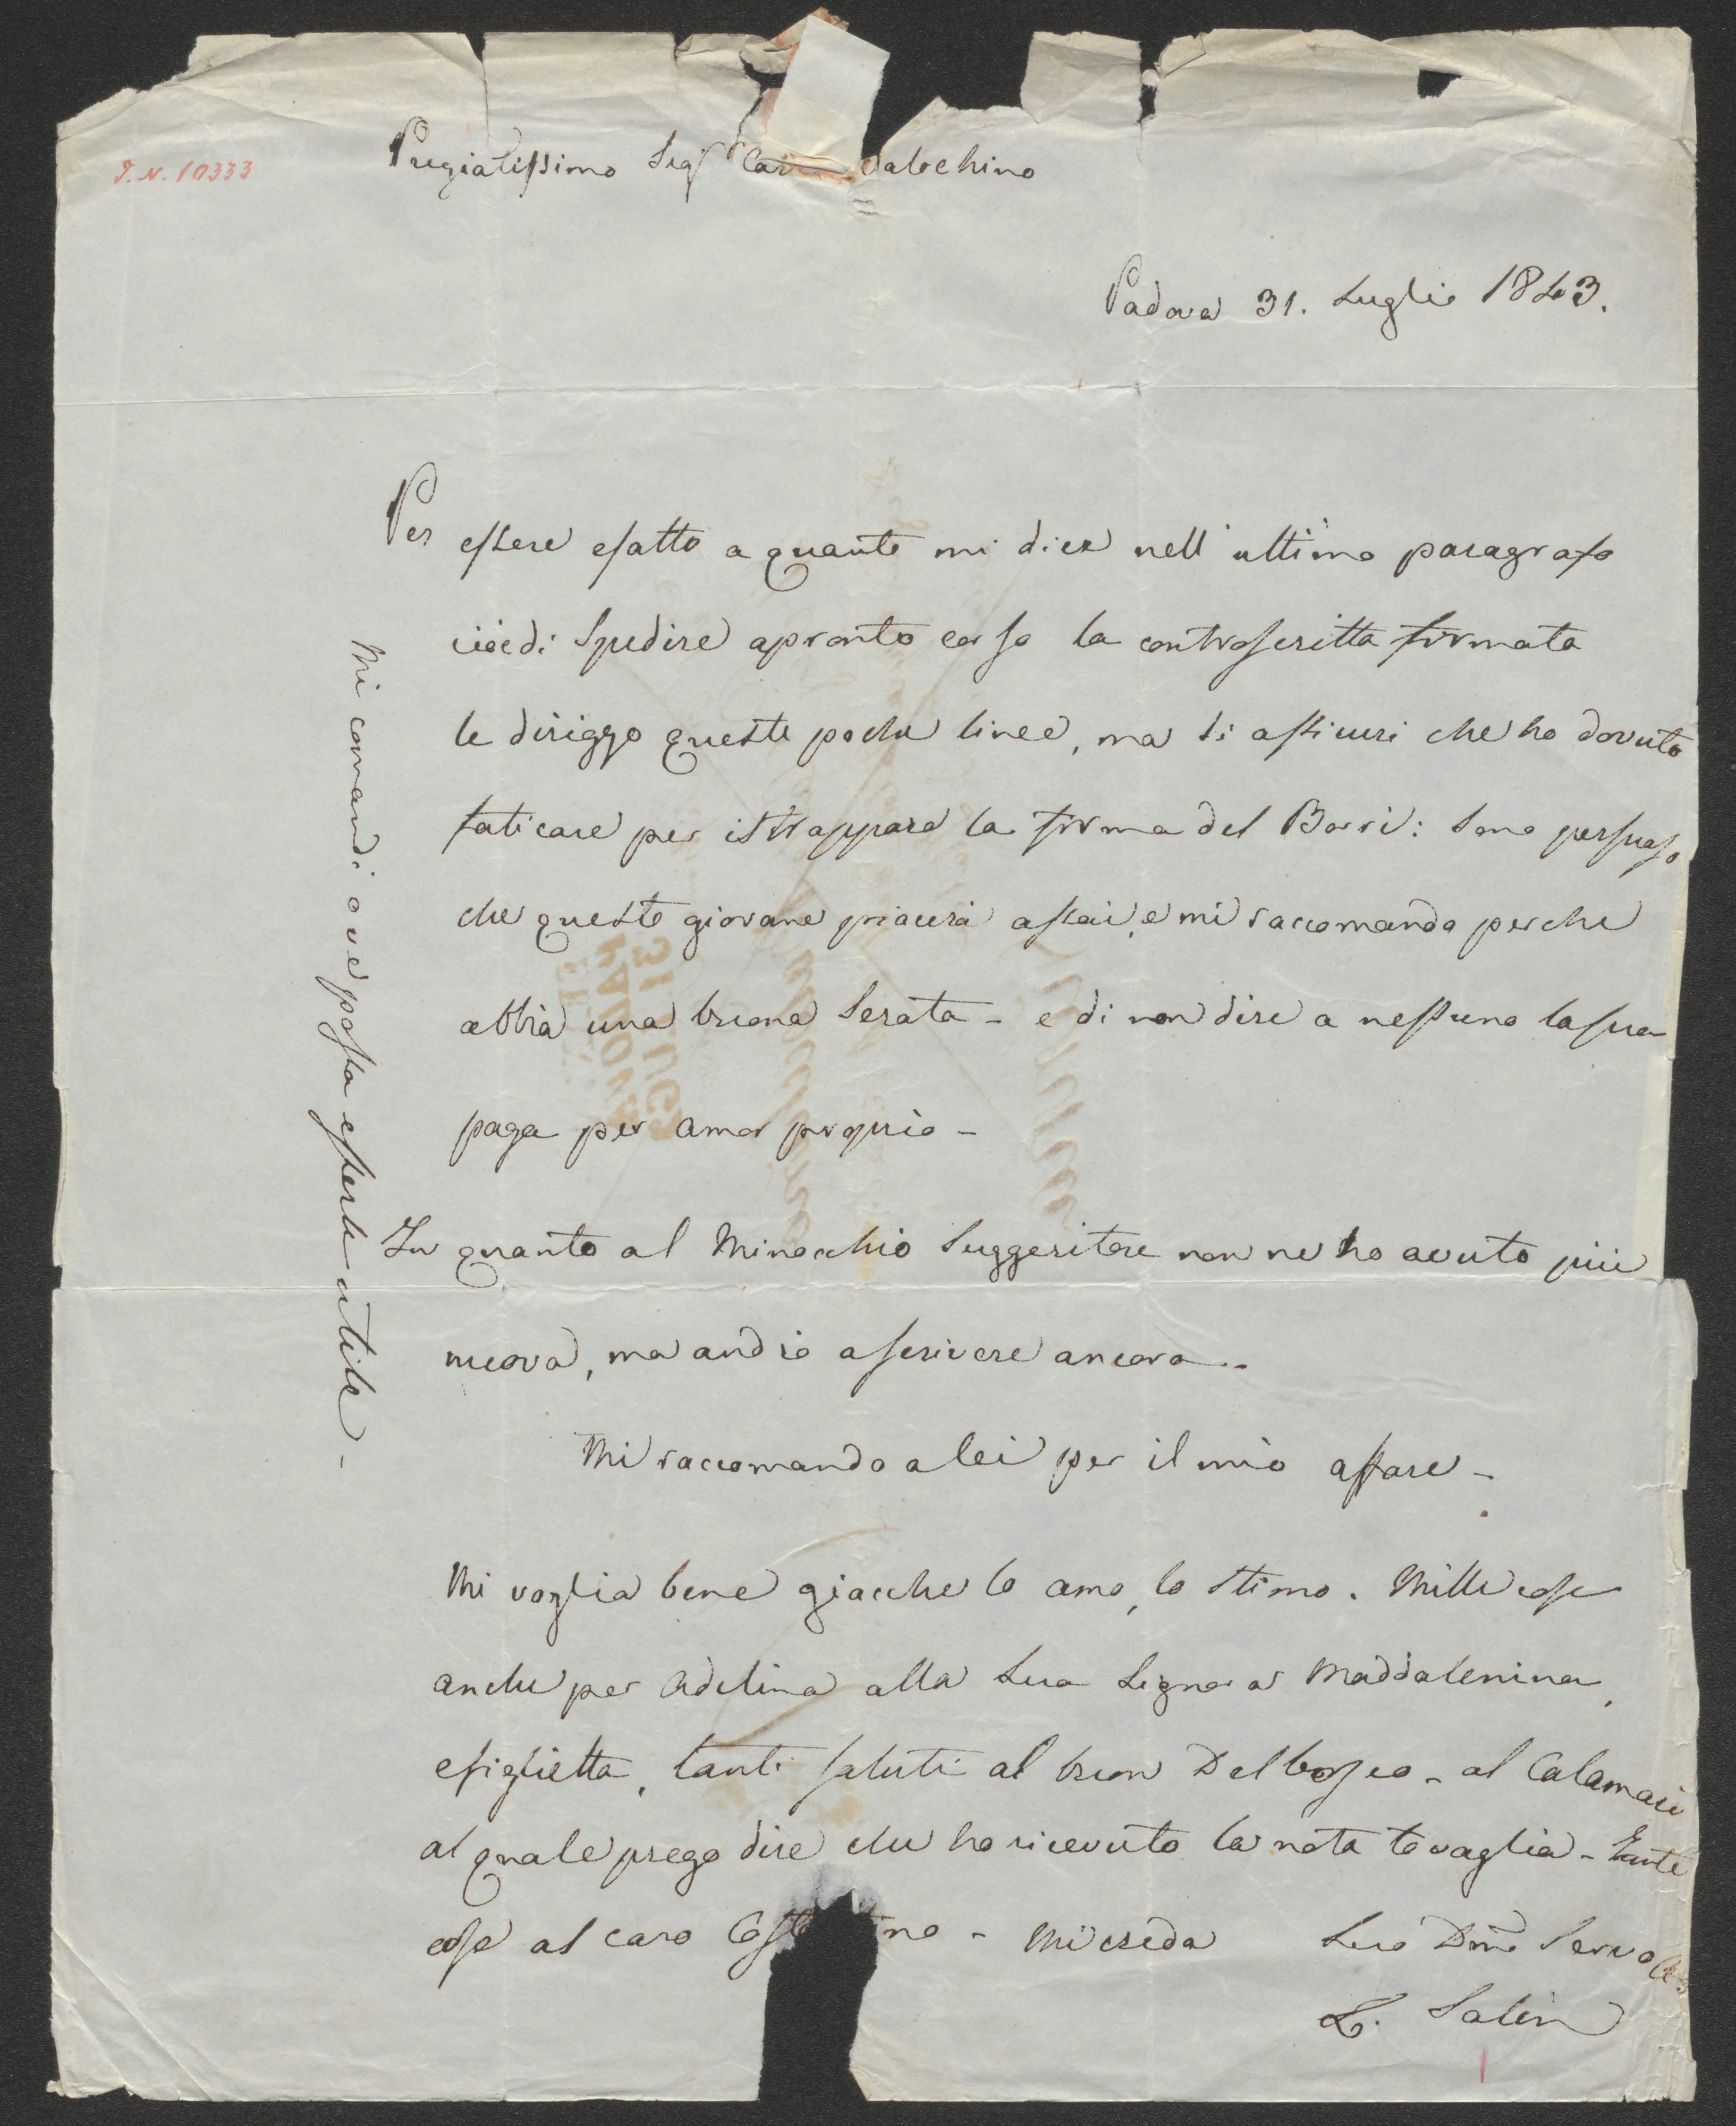 I.N. 10333
Pregiatissimo Sigr Balochino
Padova 31. Luglio 1843.
Per essere esatto a quanto mi dice nell'ultimo paragrafo
cioè di spedire a pronto corso la controscritta firmata
le diriggo queste poche linee, ma si assicuri che ho dovuto
faticare per istrappare la firma del Borsi: Sono persuaso
che questo giovane piacerà assai, e mi raccomando perche
abbia una buona Serata - e di non dire a nessuno la sua
paga per amor proprio -
In quanto al Minocchio Suggeritore non ne ho avuto più
nuova, ma andrò a scrivere ancora -
Mi raccomando a lei per il mio affare -
Mi voglia bene giacche lo amo, lo stimo. Mille cose
anche per Adelina alla Sua Signora Maddalenina,
e figlietta, tanti saluti al buon Delbosco - al Calamari
al quale prego dire che ho ricevuto la nota tovaglia - Tante
cose al caro - Mi creda Suo Dmo Servo
L. Salin
Mi comandi ove possa esserle utile -